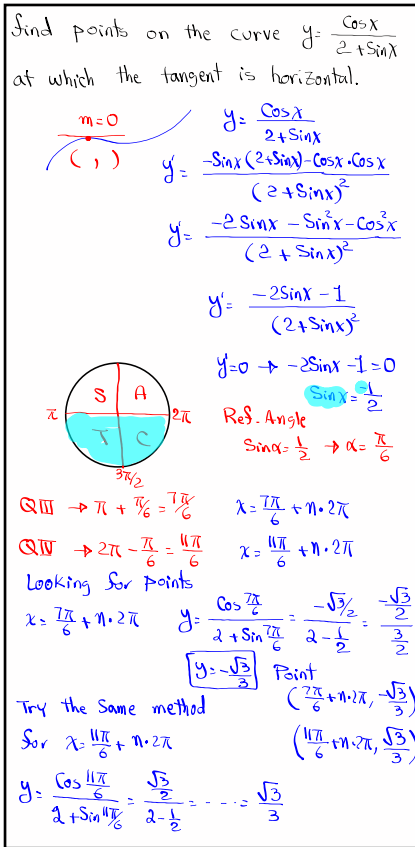 find points on the curve y = Cosx / 2 + Sinx
at which the tangent is horizontal.
m=0
( , )
y = Cosx / 2+Sinx
y' = -Sinx(2+Sinx)-Cosx·Cosx / (2+Sinx)²
y' = -2Sinx - Sin²x - Cos²x / (2 + Sinx)²
y' = -2Sinx - 1 / (2+Sinx)²
y'=0 → -2Sinx -1=0
Sinx = -1/2
S A
π 2π
T C
3π/2
Ref. Angle
Sinα = 1/2 → α = π/6
QIII → π + π/6 = 7π/6 x = 7π/6 + n·2π
QIV → 2π - π/6 = 11π/6 x = 11π/6 + n·2π
Looking for points
x = 7π/6 + n·2π y = Cos 7π/6 / 2 + Sin 7π/6 = -√3/2 / 2 - 1/2 = -√3/2 / 3/2
y = -√3/3 Point
(7π/6 + n·2π, -√3/3)
Try the Same method
for x = 11π/6 + n·2π (11π/6 + n·2π, √3/3)
y = Cos 11π/6 / 2 + Sin 11π/6 = √3/2 / 2 - 1/2 = - - - - = √3/3